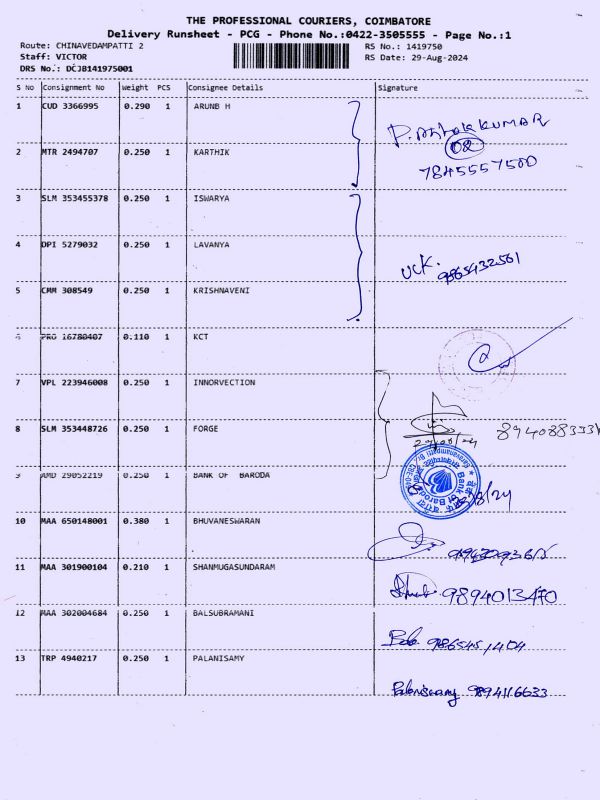 THE PROFESSIONAL COURIERS, COIMBATORE
Delivery Runsheet - PCG - Phone No.:0422-3505555 - Page No.:1
Route: CHINAVEDAMPATTI 2 RS No.: 1419750
Staff: VICTOR RS Date: 29-Aug-2024
DRS No.: DCJB141975001
S No Consignment No Weight PCS Consignee Details Signature
1 CUD 3366995 0.290 1 ARUNB H
P. Ashok KUMAR
2 MTR 2494707 0.250 1 KARTHIK
7845557500
3 SLM 353455378 0.250 1 ISWARYA
4 DPI 5279032 0.250 1 LAVANYA
UCK. 9865432561
5 CMM 308549 0.250 1 KRISHNAVENI
6 PRO 16780407 0.110 1 KCT
7 VPL 223946008 0.250 1 INNORVECTION
8 SLM 353448726 0.250 1 FORGE
9 AMD 29052219 0.250 BANK OF BARODA
Bank of Baroda
10 MAA 650148001 0.380 1 BHUVANESWARAN
11 MAA 301900104 0.210 1 SHANMUGASUNDARAM
9894013470
12 MAA 302004684 0.250 1 BALSUBRAMANI
13 TRP 4940217 0.250 1 PALANISAMY
Palaniswamy 9894116633